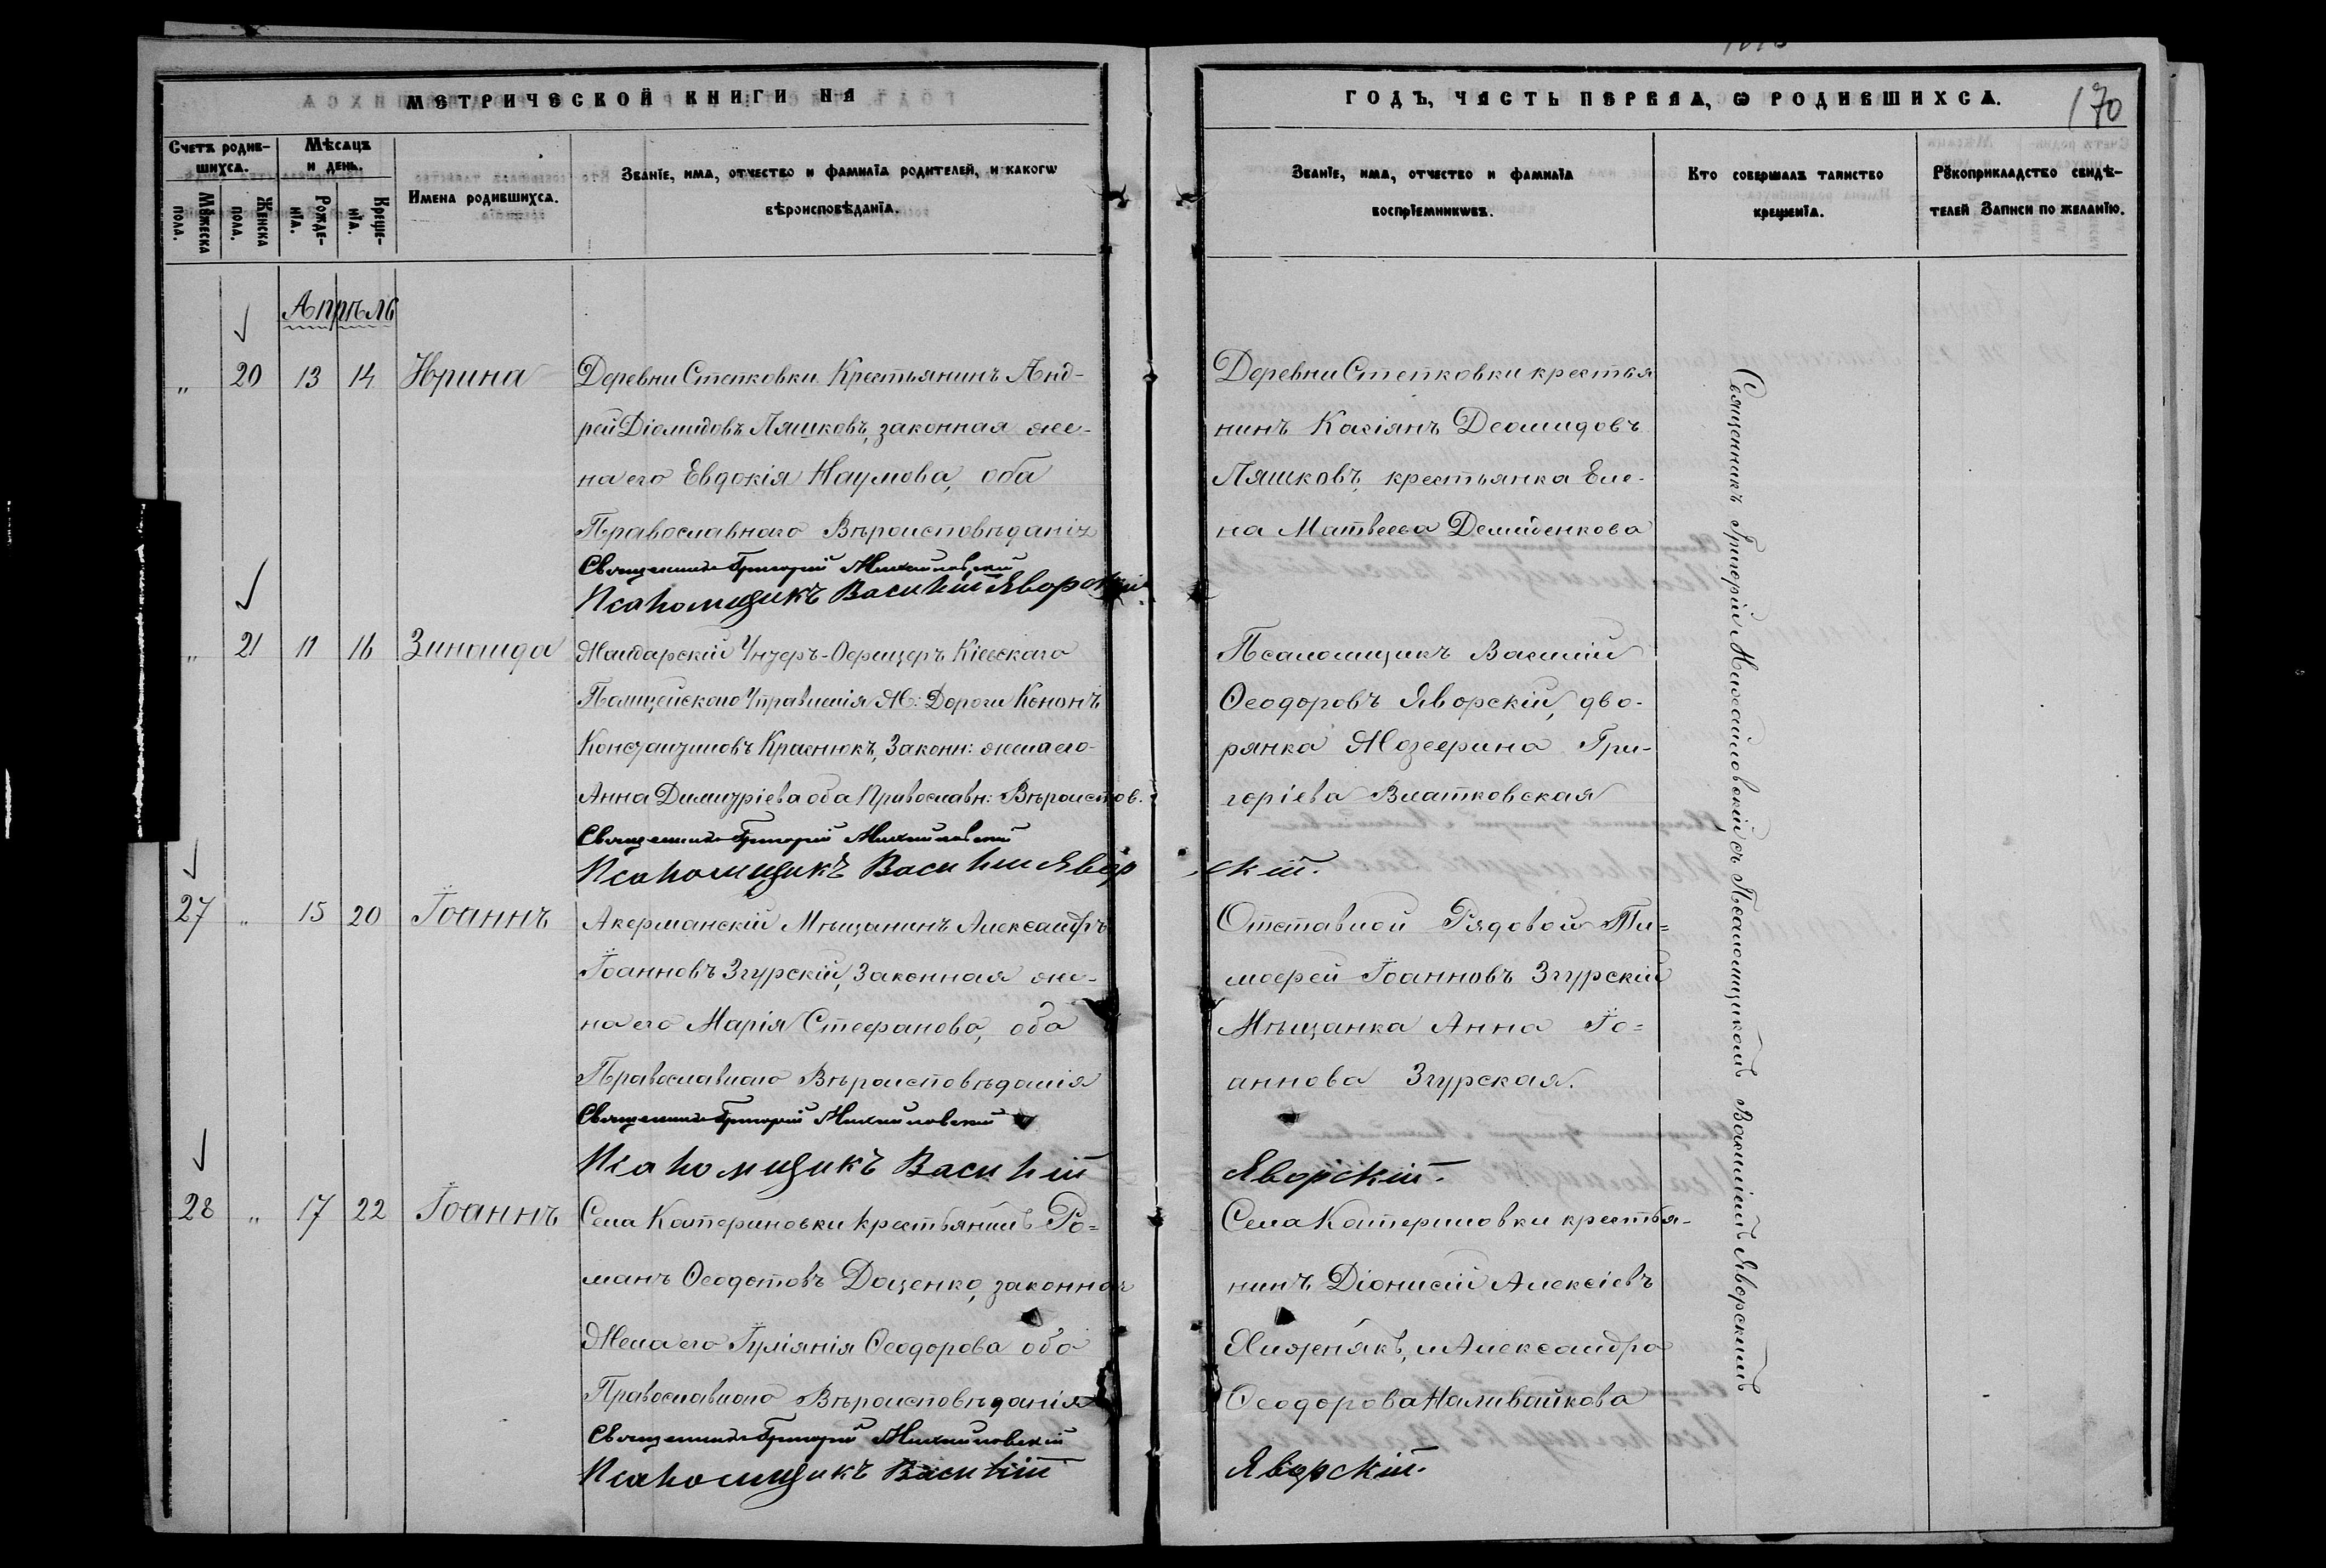 МЕТРИЧЕСКОЙ КНИГИ НА
ГОДЪ, ЧАСТЬ ПЕРВАЯ, Ѡ РОДИВШИХСѦ.
170
Счетъ родив-
шихсѧ.
Мѣсѧцъ
и день.
Мꙋжеска
пола.
Женска
пола.
Рожде-
нїѧ.
Креще-
нїѧ.
Имена родившихсѧ.
Званїе, имѧ, отчество и фамилїѧ родителей, и какогѡ
вѣроисповѣданїѧ.
Званїе, имѧ, отчество и фамилїѧ
воспрїемникѡвъ.
Кто совершалъ таинство
крещенїѧ.
Рꙋкоприкладство свидѣ-
телей записи по желанїю.
Апрѣль
„ 20 13 14 Ирина
Деревни Степковки Крестьянинъ Анд-
рей Діомидовъ Ляшковъ, законная же-
на его Евдокія Наумова, оба
Православнаго Вѣроисповѣданія
Священникъ Григорій Михайловскій
Псаломщикъ Василій Яворскій
Деревни Степковки крестья
нинъ Касіянъ Деомидовъ
Ляшковъ, крестьянка Еле-
на Матвеева Демиденкова
„ 21 11 16 Зинаида
Жандарскій Унтеръ-Офицеръ Кіевскаго
Полицейскаго Управленія Ж: Дороги Кононъ
Константиновъ Краснюкъ, Законн: жена его
Анна Димитріева оба Православн: Вѣроисков.
Священникъ Григорій Михайловскій
Псаломщикъ Василій Яворскій.
Псаломщикъ Василій
Ѳеодоровъ Яворскій, дво-
рянка Григоріева
27 „ 15 20 Іоаннъ
Акерманскій Мѣщанинъ Александръ
Іоанновъ Згурскій, Законная же-
на его Марія Стефанова, оба
Православнаго Вѣроисповѣданія
Священникъ Григорій Михайловскій
Псаломщикъ Василій Яворскій.
Отставной Рядовой Ти=
мофей Іоанновъ Згурскій
Мѣщанка Анна Іо=
аннова Згурская.
28 „ 17 22 Іоаннъ
Села Катериновки крестьянинъ Ро=
манъ Ѳеодотовъ Доценко, законная
Жена его Іуліянія Ѳеодорова оба
Православнаго Вѣроисповѣданія
Священникъ Григорій Михайловскій
Псаломщикъ Василій Яворскій.
Села Катериновки крестья-
нинъ Діонисій Алексіевъ
Хиженякъ, и Александра
Ѳеодорова Наливайкова
Священникъ Григорій Михайловскій съ Псаломщикомъ Василіемъ Яворскимъ